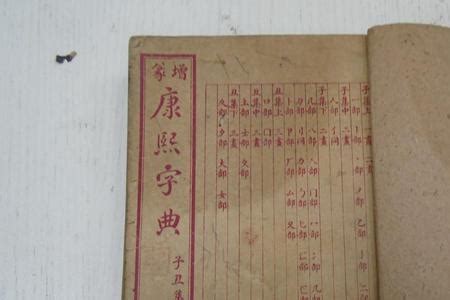 增篆
康熙字典
子丑集
子集上 一畫 二畫
一部 丨部 丶部 丿部 乙部 亅部 二
子集中 二畫
人部 亻同
子集下 二畫
儿部 入部 八部 冂部 冖部 冫部 几部
刀部 刂同 力部 勹部 匕部 匚部 匸部
卜部 卩部 厂部 厶部 又部
丑集上 三畫
口部 囗部
丑集中 三畫
土部 士部 夂部
丑集下 三畫
夊部 夕部 大部 女部